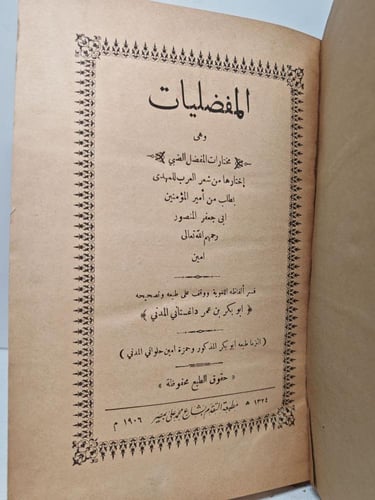 المفضليات
وهى
مختارات المفضل الضبي
إختارها من شعر العرب للمهدى
بطلب من أمير المؤمنين
ابى جعفر المنصور
رحمهم الله تعالى
امين
فسر ألفاظه اللغوية ووقف على طبعه وتصحيحه
﴿ ابو بكر بن عمر داغستاني المدني ﴾
( التزما طبعه ابو بكر المذكور وحمزة امين حلواني المدني )
« حقوق الطبع محفوظة »
١٣٢٤ هـ مطبعة التقدم بشارع محمد علي بمصر ١٩٠٦ م